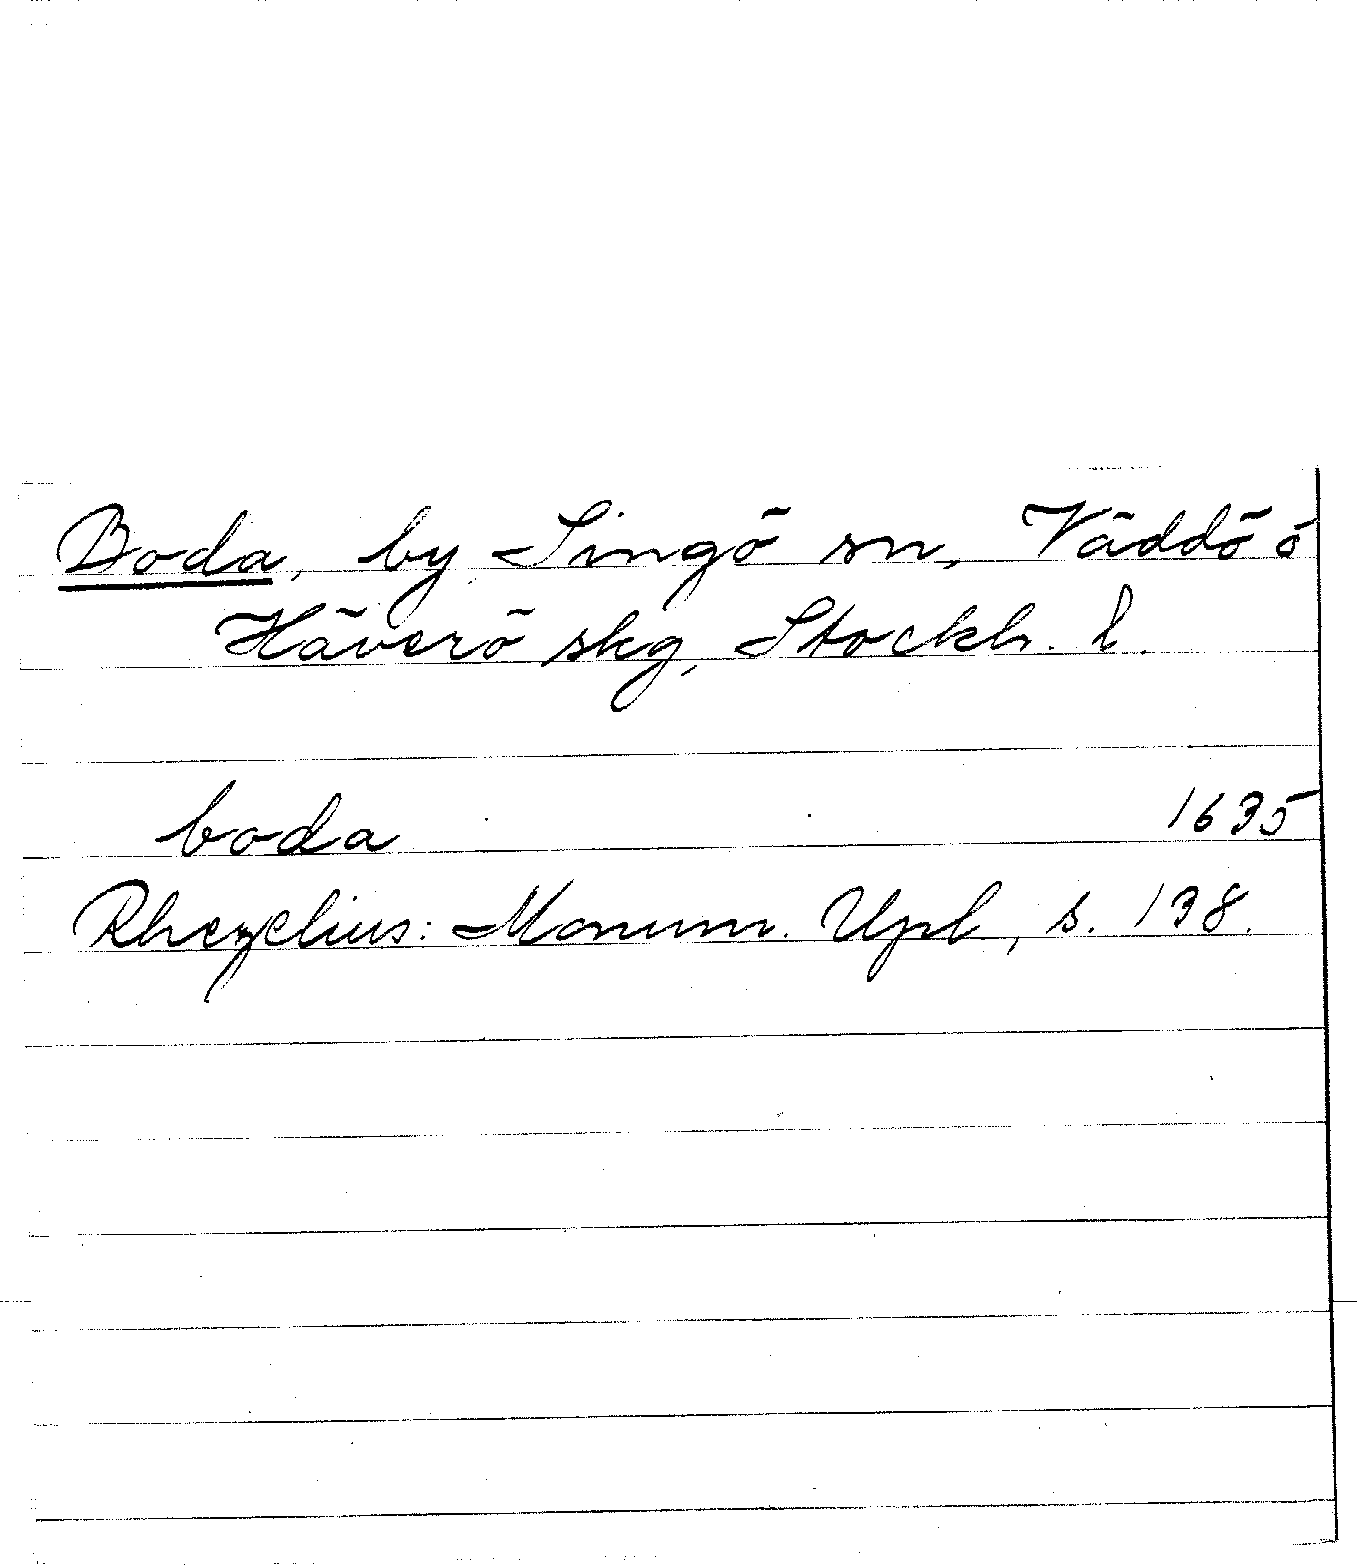 Boda, by, Singö sn, Väddö ó
Häverö skg, Stockh. l.
boda 1635
Rhezelius: Monum. Upl, s. 138.